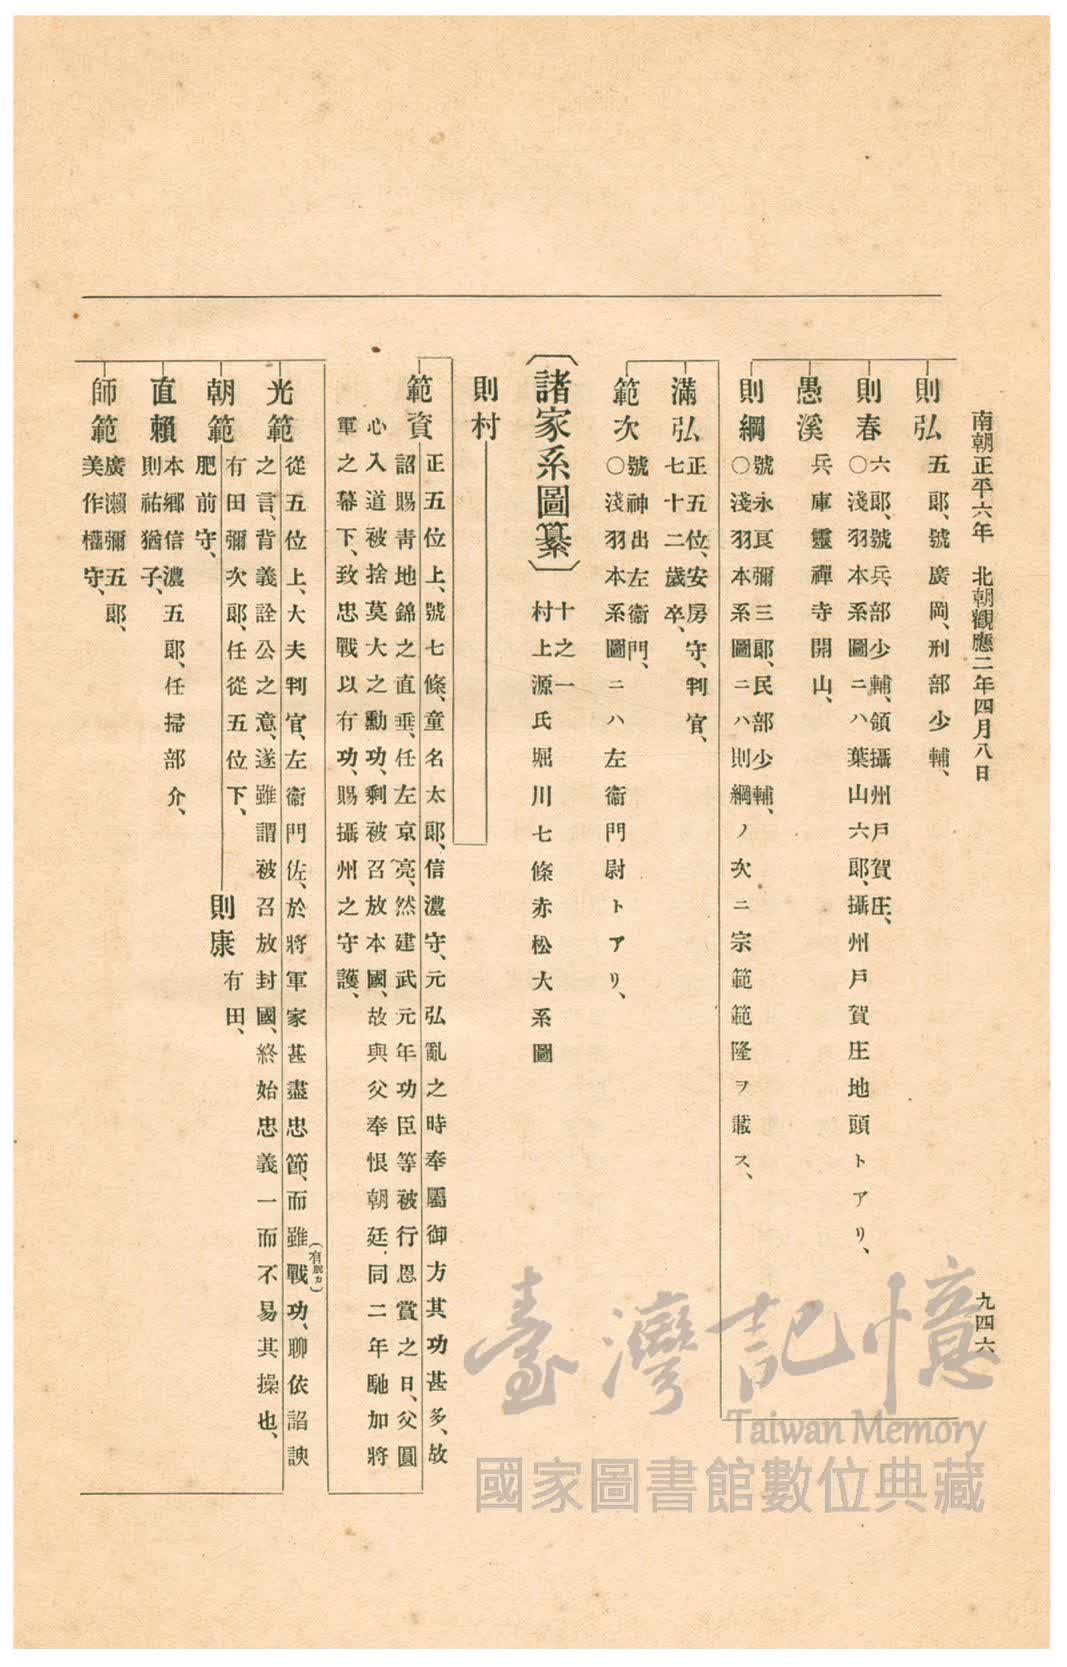 南朝正平六年　北朝觀應二年四月八日
九四六
則弘
五郎、號廣岡、刑部少輔、
則春
六郎、號兵部少輔、領攝州戶賀庄、
○淺羽本系圖ニハ葉山六郎、攝州戶賀庄地頭トアリ、
愚溪
兵庫靈禪寺開山、
則綱
號永良彌三郎、民部少輔、
○淺羽本系圖ニハ則綱ノ次ニ宗範範隆ヲ載ス、
滿弘
正五位、安房守、判官、
七十二歲卒、
範次
號神出左衞門、
○淺羽本系圖ニハ左衞門尉トアリ、
〔諸家系圖纂〕
十之一
村上源氏堀川七條赤松大系圖
則村
範資
正五位上、號七條、童名太郎、信濃守、元弘亂之時奉屬御方其功甚多、故
詔賜靑地錦之直垂、任左京亮、然建武元年功臣等被行恩賞之日、父圓
心入道被捨莫大之勳功、剩被召放本國、故與父奉恨朝廷、同二年馳加將
軍之幕下、致忠戰以有功、賜攝州之守護、
光範
從五位上、大夫判官、左衞門佐、於將軍家甚盡忠節、而雖戰功、聊依諂諛
（有脫カ）
之言、背義詮公之意、遂雖謂被召放封國、終始忠義一而不易其操也、
朝範
有田彌次郎、任從五位下、
肥前守、
則康
有田、
直賴
本鄕信濃五郎、任掃部介、
則祐猶子、
師範
廣瀨彌五郎、
美作權守、
臺灣記憶
Taiwan Memory
國家圖書館數位典藏